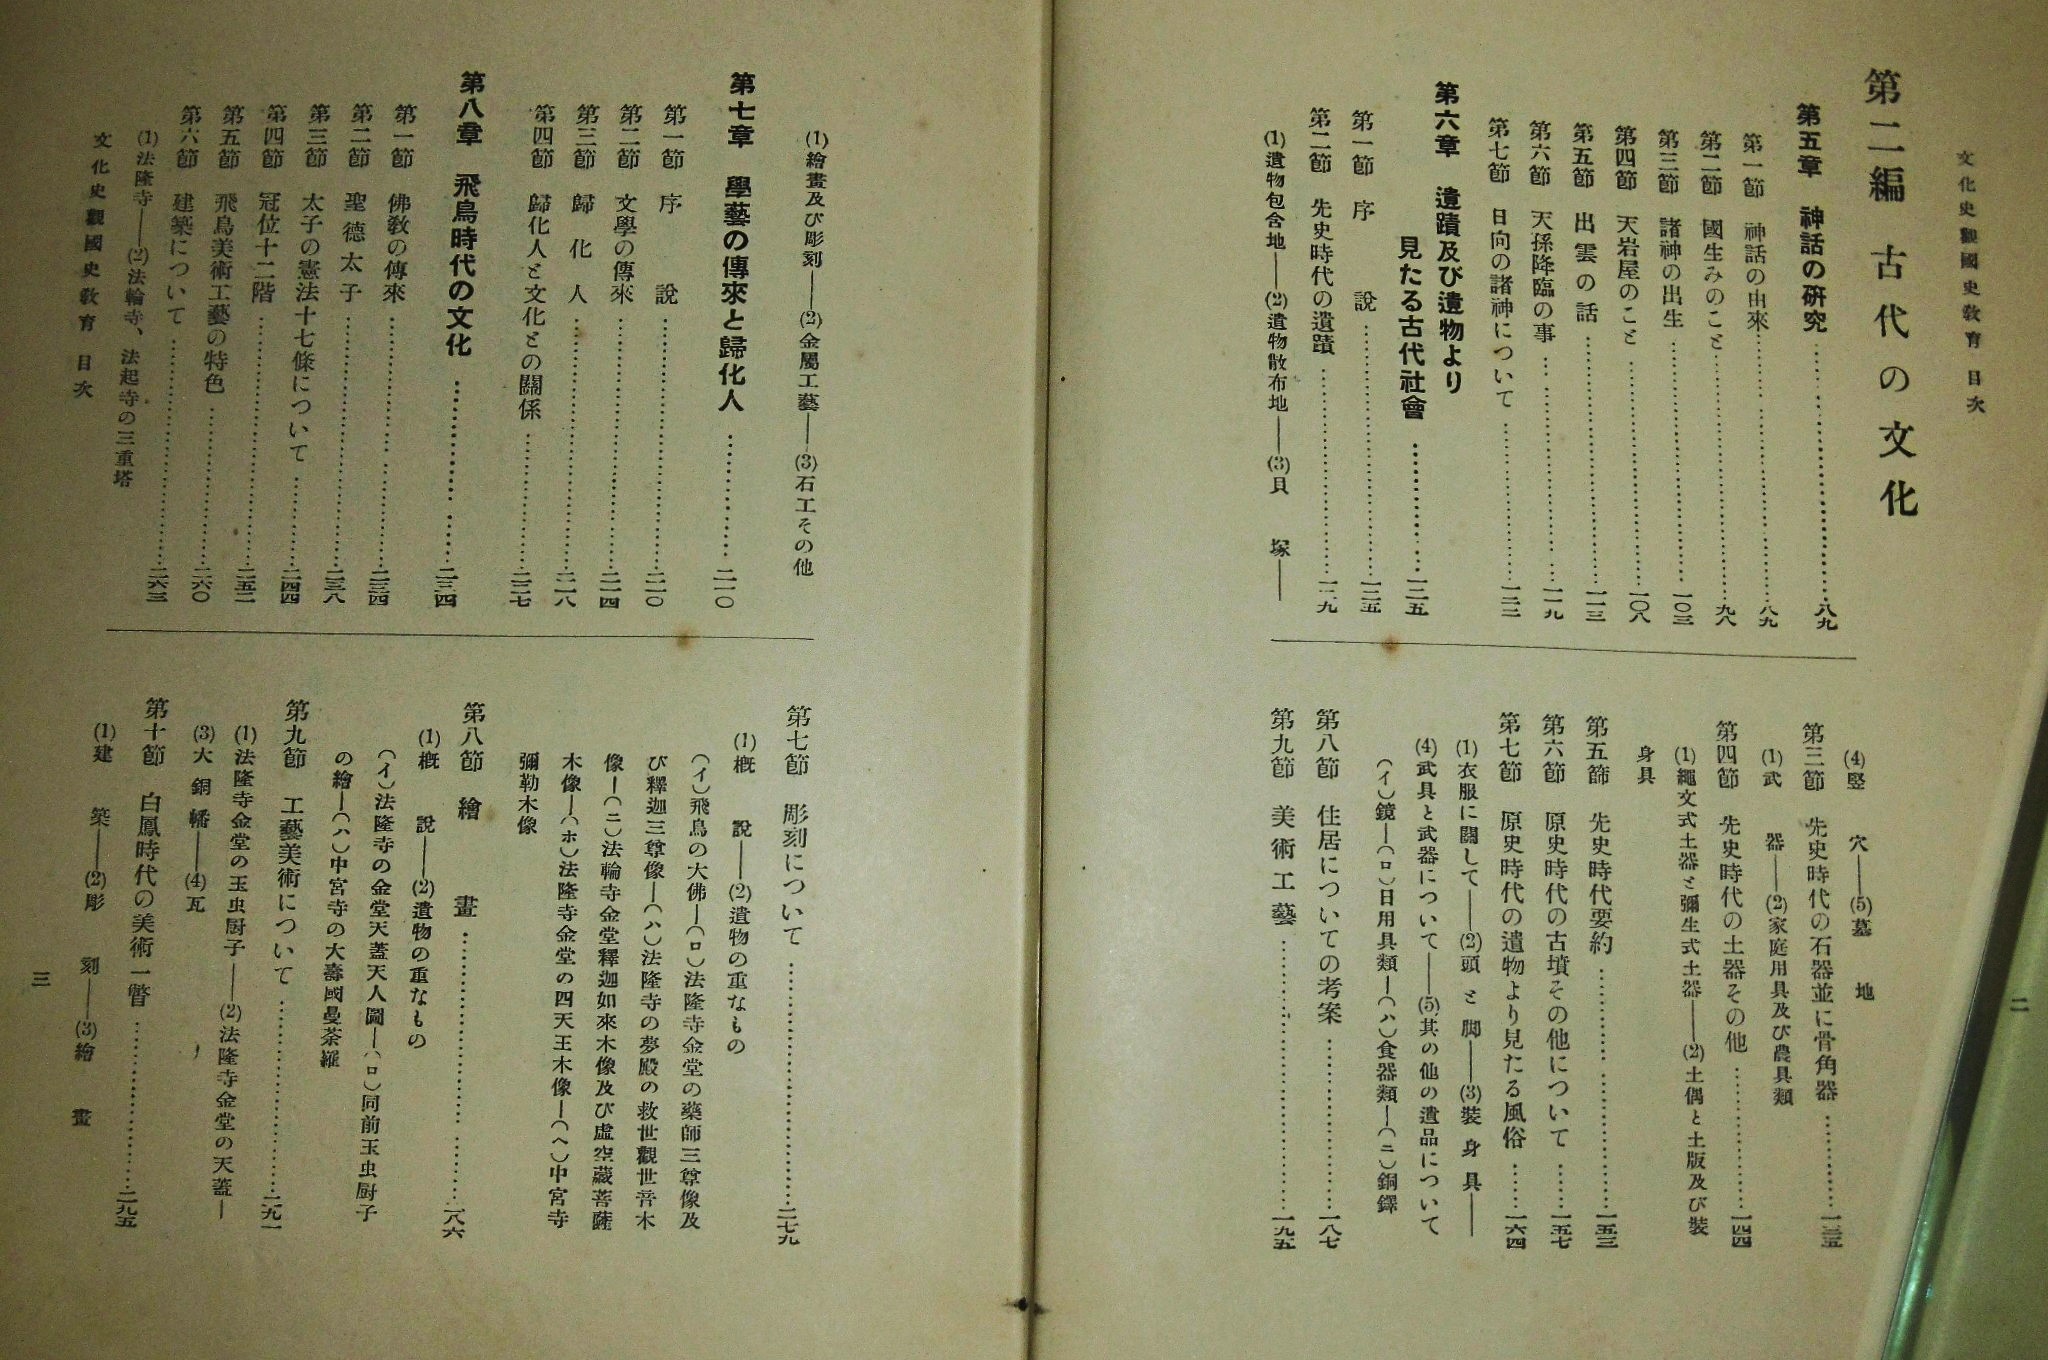 文化史觀國史敎育 目次
二
第二編 古代の文化
第五章 神話の研究……八九
第一節 神話の由來……八九
第二節 國生みのこと……九八
第三節 諸神の出生……一〇三
第四節 天岩屋のこと……一〇八
第五節 出雲の話……一一三
第六節 天孫降臨の事……一一九
第七節 日向の諸神について……一二二
第六章 遺蹟及び遺物より
見たる古代社會……一二五
第一節 序說……一二五
第二節 先史時代の遺蹟……一二九
(1)遺物包含地――(2)遺物散布地――(3)貝塚――
(4)竪穴――(5)墓地
第三節 先史時代の石器並に骨角器……一三五
(1)武器――(2)家庭用具及び農具類
第四節 先史時代の土器その他……一四四
(1)繩文式土器と彌生式土器――(2)土偶と土版及び裝
身具
第五篩 先史時代要約……一五三
第六節 原史時代の古墳その他について……一五七
第七節 原史時代の遺物より見たる風俗……一六四
(1)衣服に關して――(2)頭と脚――(3)裝身具――
(4)武具と武器について――(5)其の他の遺品について
(イ)鏡―(ロ)日用具類―(ハ)食器類―(ニ)銅鐸
第八節 住居についての考案……一八七
第九節 美術工藝……一九五
(1)繪畫及び彫刻――(2)金屬工藝――(3)石工その他
第七章 學藝の傳來と歸化人……二一〇
第一節 序說……二一〇
第二節 文學の傳來……二一四
第三節 歸化人……二一八
第四節 歸化人と文化との關係……二二七
第八章 飛鳥時代の文化……二三四
第一節 佛敎の傳來……二三四
第二節 聖德太子……二三八
第三節 太子の憲法十七條について……二四四
第四節 冠位十二階……二五二
第五節 飛鳥美術工藝の特色……二六〇
第六節 建築について……二六三
(1)法隆寺――(2)法輪寺、法起寺の三重塔
文化史觀國史敎育 目次
第七節 彫刻について……二七九
(1)槪說――(2)遺物の重なもの
(イ)飛鳥の大佛―(ロ)法隆寺金堂の藥師三尊像及
び釋迦三尊像―(ハ)法隆寺の夢殿の救世觀世音木
像―(ニ)法輪寺金堂釋迦如來木像及び虛空藏菩薩
木像―(ホ)法隆寺金堂の四天王木像―(ヘ)中宮寺
彌勒木像
第八節 繪畫……二八六
(1)槪說――(2)遺物の重なもの
(イ)法隆寺の金堂天蓋天人圖―(ロ)同前玉虫厨子
の繪―(ハ)中宮寺の大壽國曼荼羅
第九節 工藝美術について……二九一
(1)法隆寺金堂の玉虫厨子――(2)法隆寺金堂の天蓋―
(3)大銅幡――(4)瓦
第十節 白鳳時代の美術一瞥……二九五
(1)建築――(2)彫刻――(3)繪畫
三